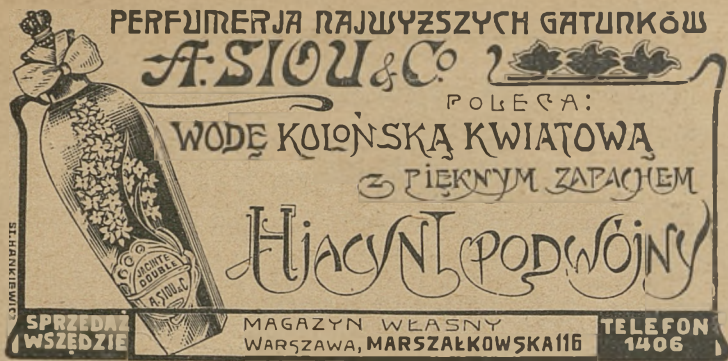 PERFUMERJA NAJWYŻSZYCH GATUNKÓW
A. SIOU & Co
POLECA:
WODĘ KOLOŃSKĄ KWIATOWĄ
z PIĘKNYM ZAPACHEM
HjACYNT PODWÓJNY
JACINTE
DOUBLE
A. SIOU & C.
ST. HANKIEWICZ
SPRZEDAŻ
WSZĘDZIE
MAGAZYN WŁASNY
WARSZAWA, MARSZAŁKOWSKA 116
TELEFON
1406